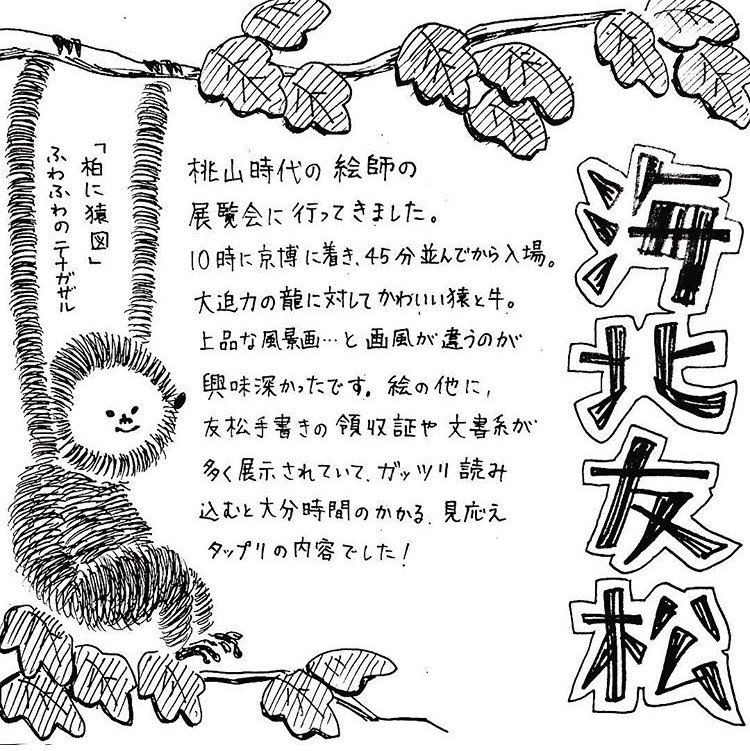 海北友松
桃山時代の絵師の
展覧会に行ってきました。
10時に京博に着き、45分並んでから入場。
大迫力の龍に対してかわいい猿と牛。
上品な風景画…と画風が違うのが
興味深かったです。絵の他に、
友松手書きの領収証や文書系が
多く展示されていて、ガッツリ読み
込むと大分時間のかかる、見応え
タップリの内容でした！
「柏に猿図」
ふわふわのテナガザル